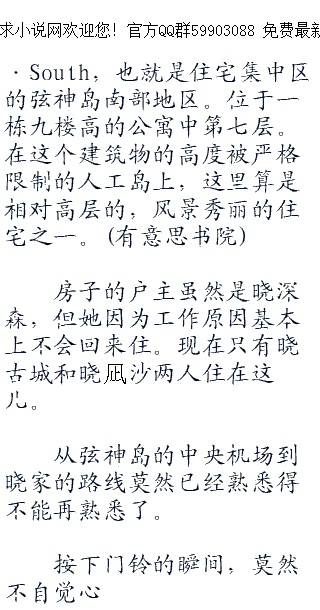 求小说网欢迎您! 官方QQ群59903088 免费最新
·South，也就是住宅集中区
的弦神岛南部地区。位于一
栋九楼高的公寓中第七层。
在这个建筑物的高度被严格
限制的人工岛上，这里算是
相对高层的，风景秀丽的住
宅之一。(有意思书院)
房子的户主虽然是晓深
森，但她因为工作原因基本
上不会回来住。现在只有晓
古城和晓凪沙两人住在这
儿。
从弦神岛的中央机场到
晓家的路线莫然已经熟悉得
不能再熟悉了。
按下门铃的瞬间，莫然
不自觉心